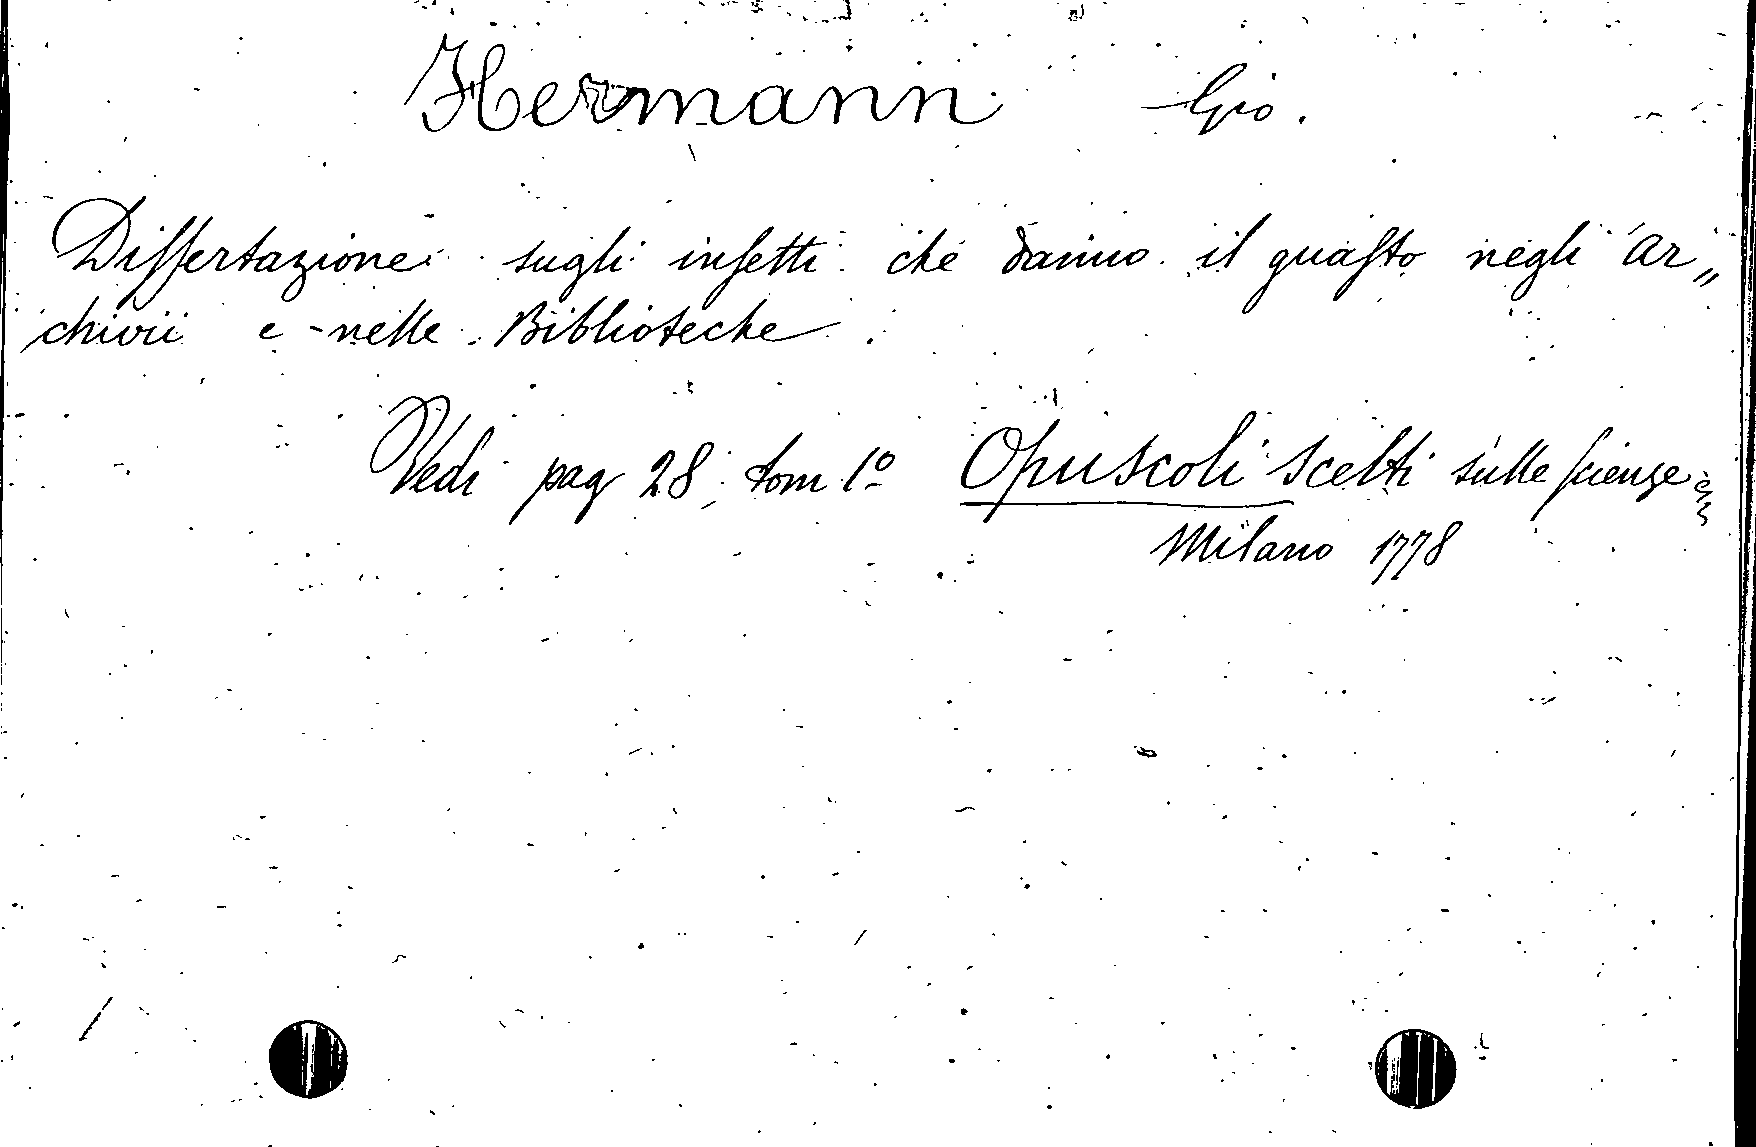 Hermann Gio.
Diſsertazione sugli inſetti che danno il guaſto negli ar„
chivii e nelle Biblioteche.
Vedi pag 28, tom 1º Opuscoli scelti sulle ſcienze
Milano 1778